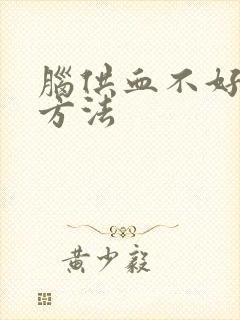 腦供血不好
方法
黄少毅